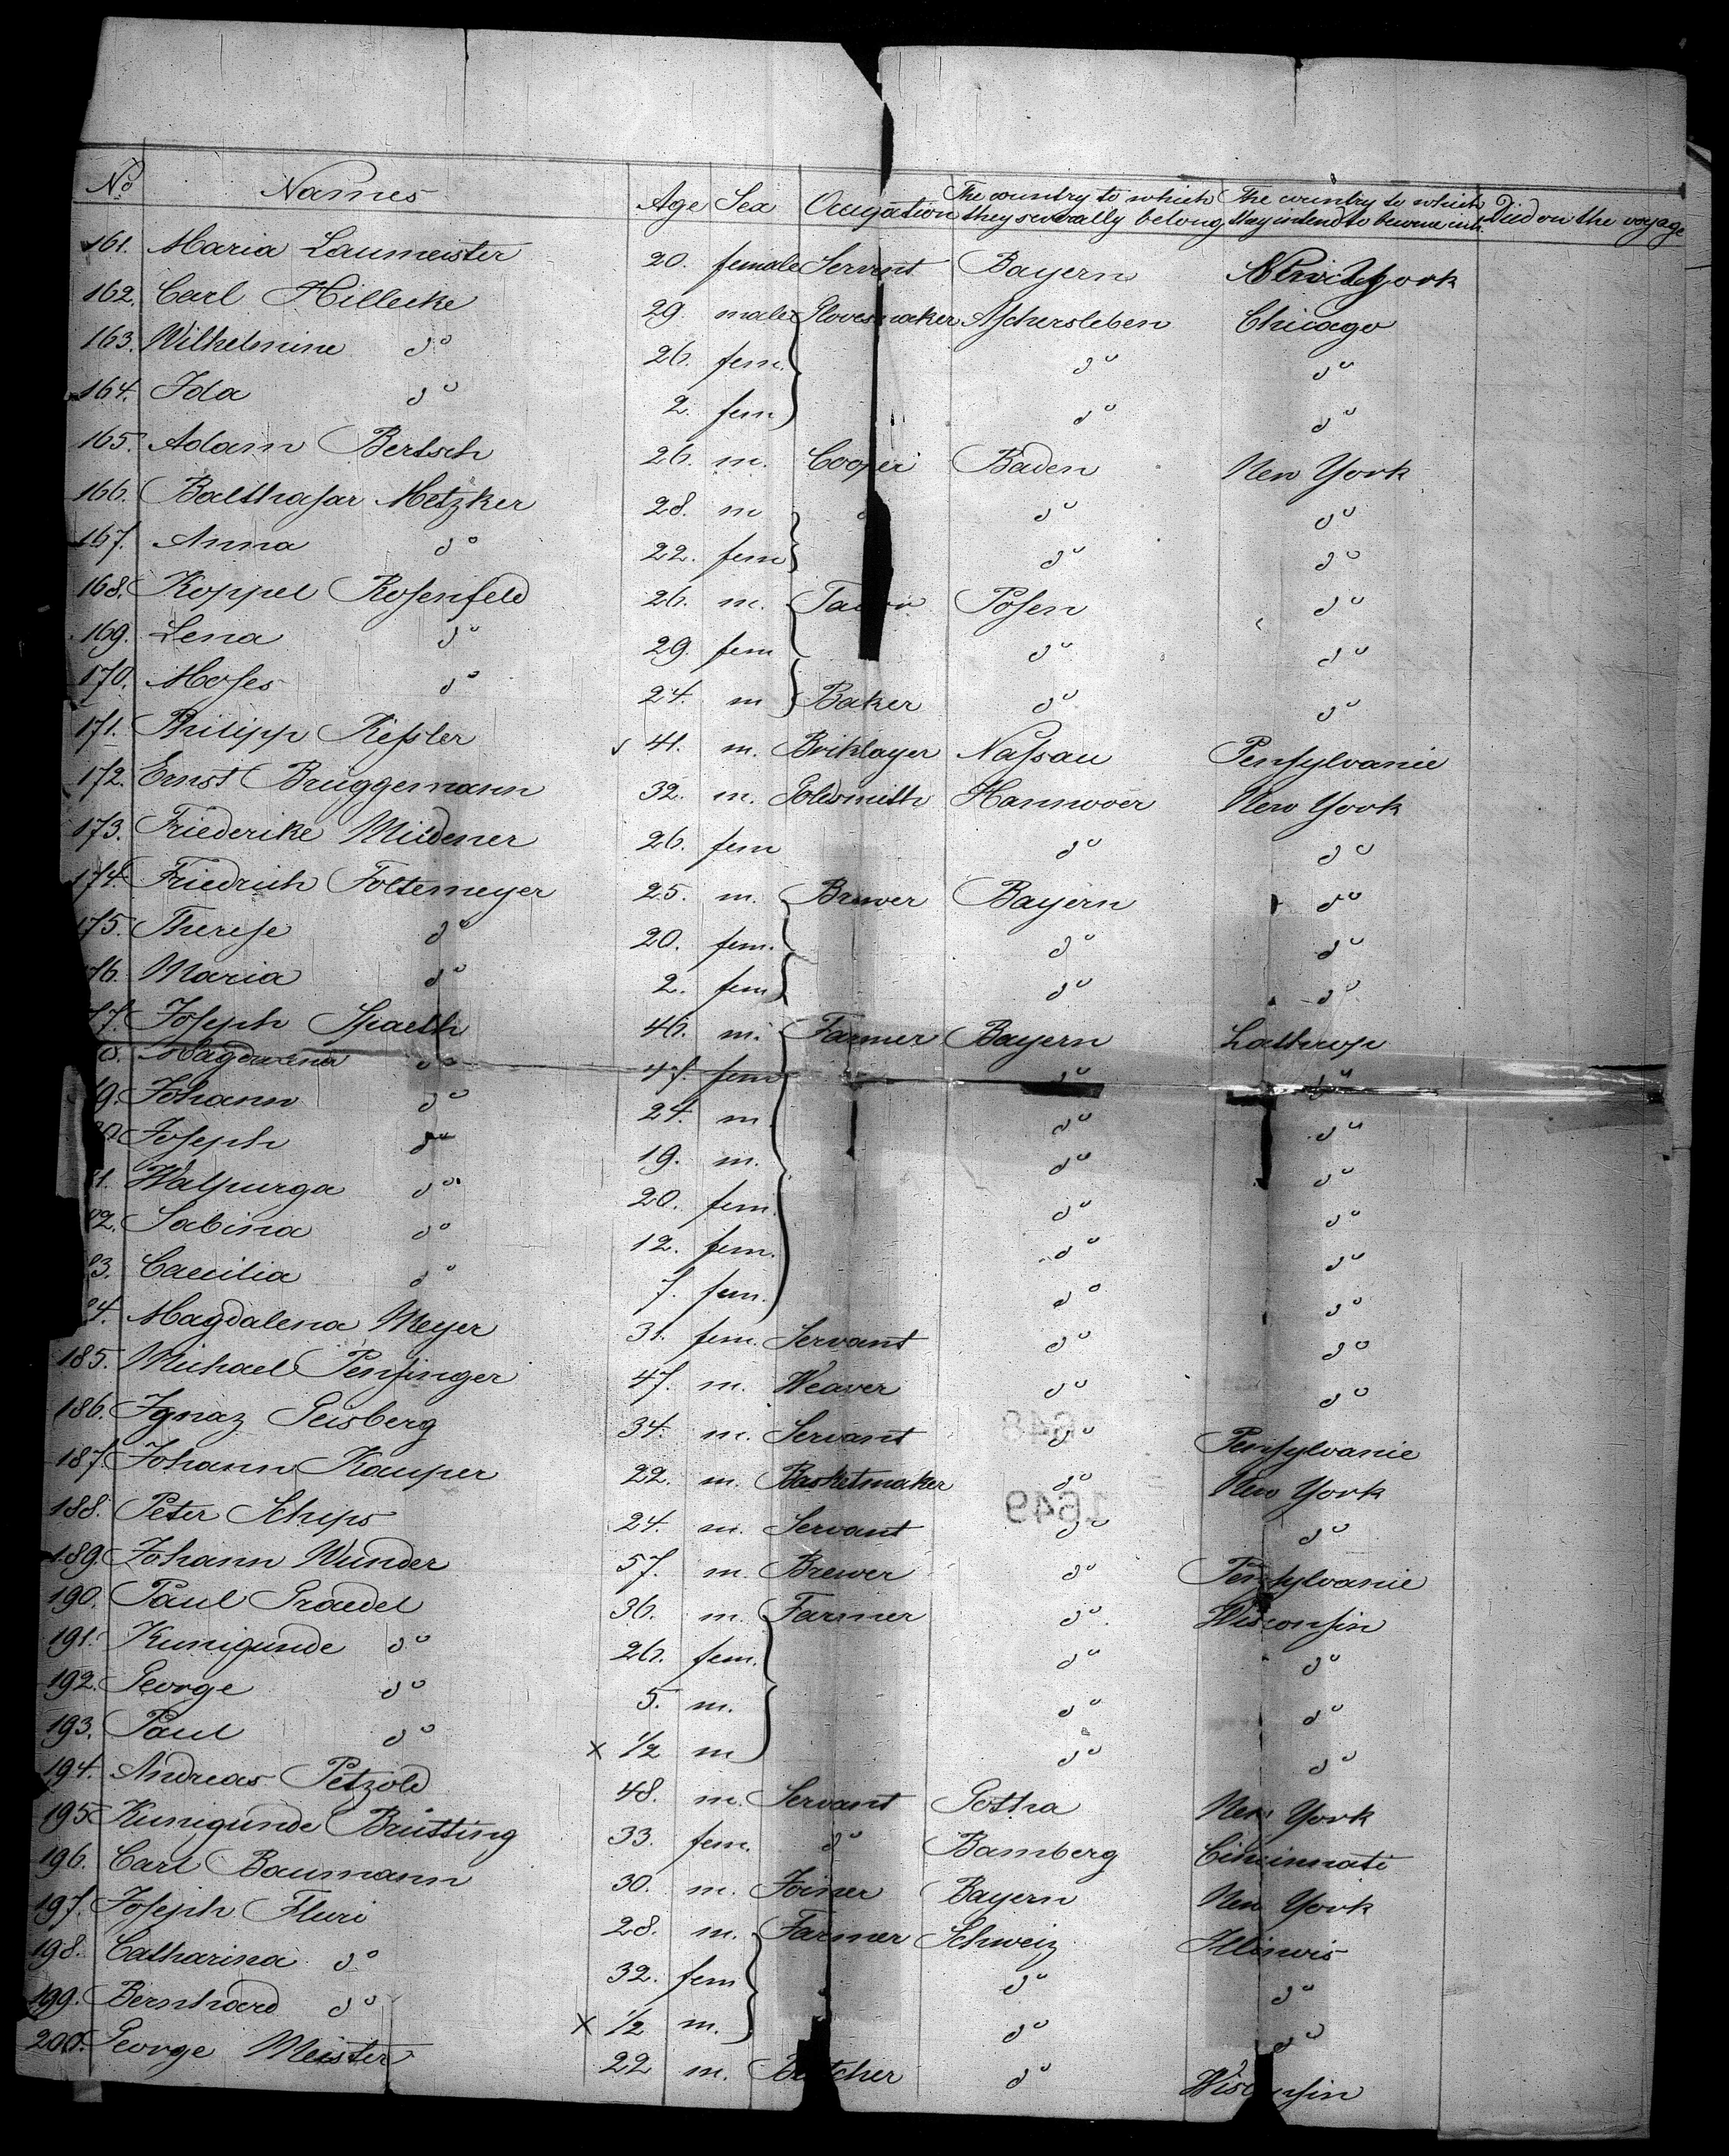 No Names Age Sex Ocupation The country to which they severally belong The country to which they intend to become inh. Died on the voyage
161. Maria Laumeister 20. female Servant Bayern New York
162. Carl Hillecke 29. male Glovesmaker Aschersleben Chicago
163. Wilhelmine do 26. fem. do do
164. Ida do 2. fem do do
165. Adam Bertsch 26. m. Cooper Baden New York
166. Balthasar Metzker 28. m do do
167. Anna do 22. fem do do
168. Koppel Rosenfeld 26. m. Posen do
169. Lena do 29. fem do do
170. Moses do 24. m Baker do do
171. Philipp Kessler 41. m. Briklayer Nassau Pensylvanie
172. Ernst Brüggemann 32. m. Goldsmith Hannover New York
173. Friederike Mildener 26. fem do do
174. Friedrich Foltemeyer 25. m. Brewer Bayern do
175. Therese do 20. fem. do do
76. Maria do 2. fem do do
77. Joseph Spaeth 46. m. Farmer Bayern Lathrop
8. Magdalena do 47. fem do do
79. Johann do 24. m. do do
80. Joseph do 19. m. do do
81. Walpurga do 20. fem. do do
82. Sabina do 12. fem. do do
83. Caecilia do 7. fem. do do
84. Magdalena Meyer 31. fem. Servant do do
185. Michael Pensinger 47. m. Weaver do do
186. Ignaz Geisberg 34. m. Servant do Pensylvanie
187. Johann Kauper 22. m. Basketmaker do New York
188. Peter Schips 24. m. Servant do do
189. Johann Wunder 57. m. Brewer do Pensylvanie
190. Paul Praedel 36. m. Farmer do Wisconsin
191. Kunigunde do 26. fem. do do
192. George do 5. m. do do
193. Paul do x 1/2 m do do
194. Andreas Petzold 48. m. Servant Gotha New York
195 Kunigunde Brütting 33. fem. do Bamberg Cincinnati
196. Carl Baumann 30. m. Joiner Bayern New York
197. Joseph Fluri 28. m. Farmer Schweiz Illinois
198. Catharina do 32. fem do do
199. Bernhard do x 1/2 m. do do
200. George Meister 22 m. Butcher do Wisconsin
1648
1649